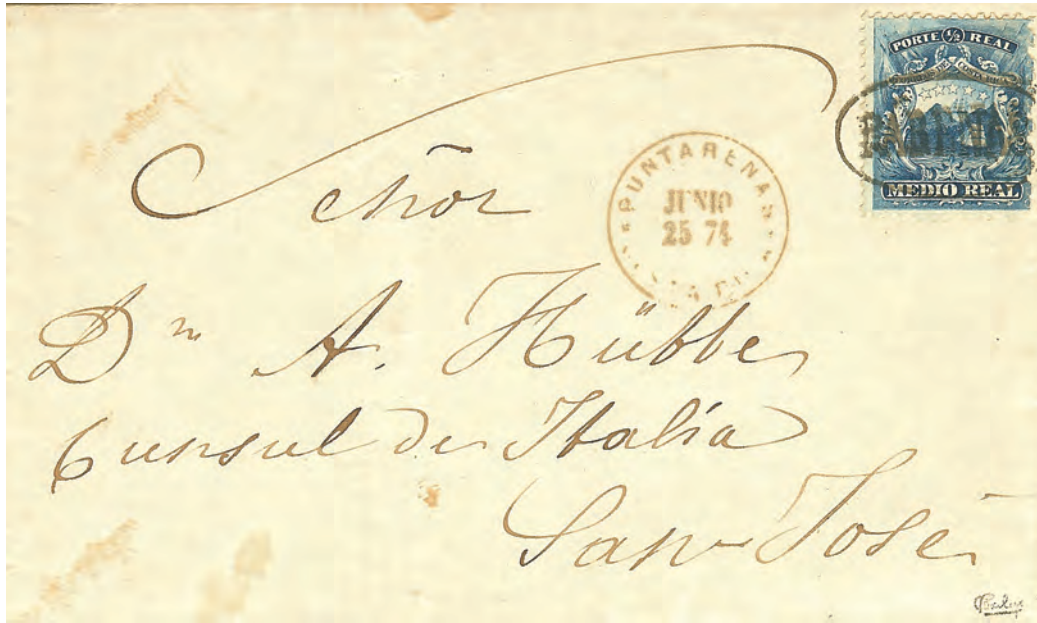 PORTE ½ REAL
MEDIO REAL
PUNTARENAS
JUNIO
25 74
Señor
Dn A. Hübbe
Consul de Italia
San José